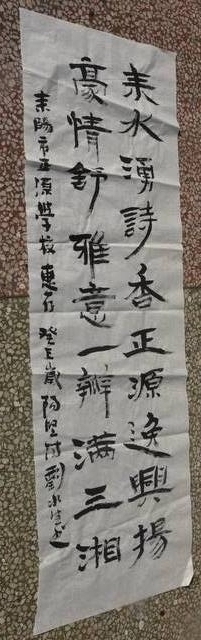 耒水湧詩香正源逸興揚
豪情舒雅意一瓣满三湘
耒陽市正源學校惠存 癸 歲 陽 劉